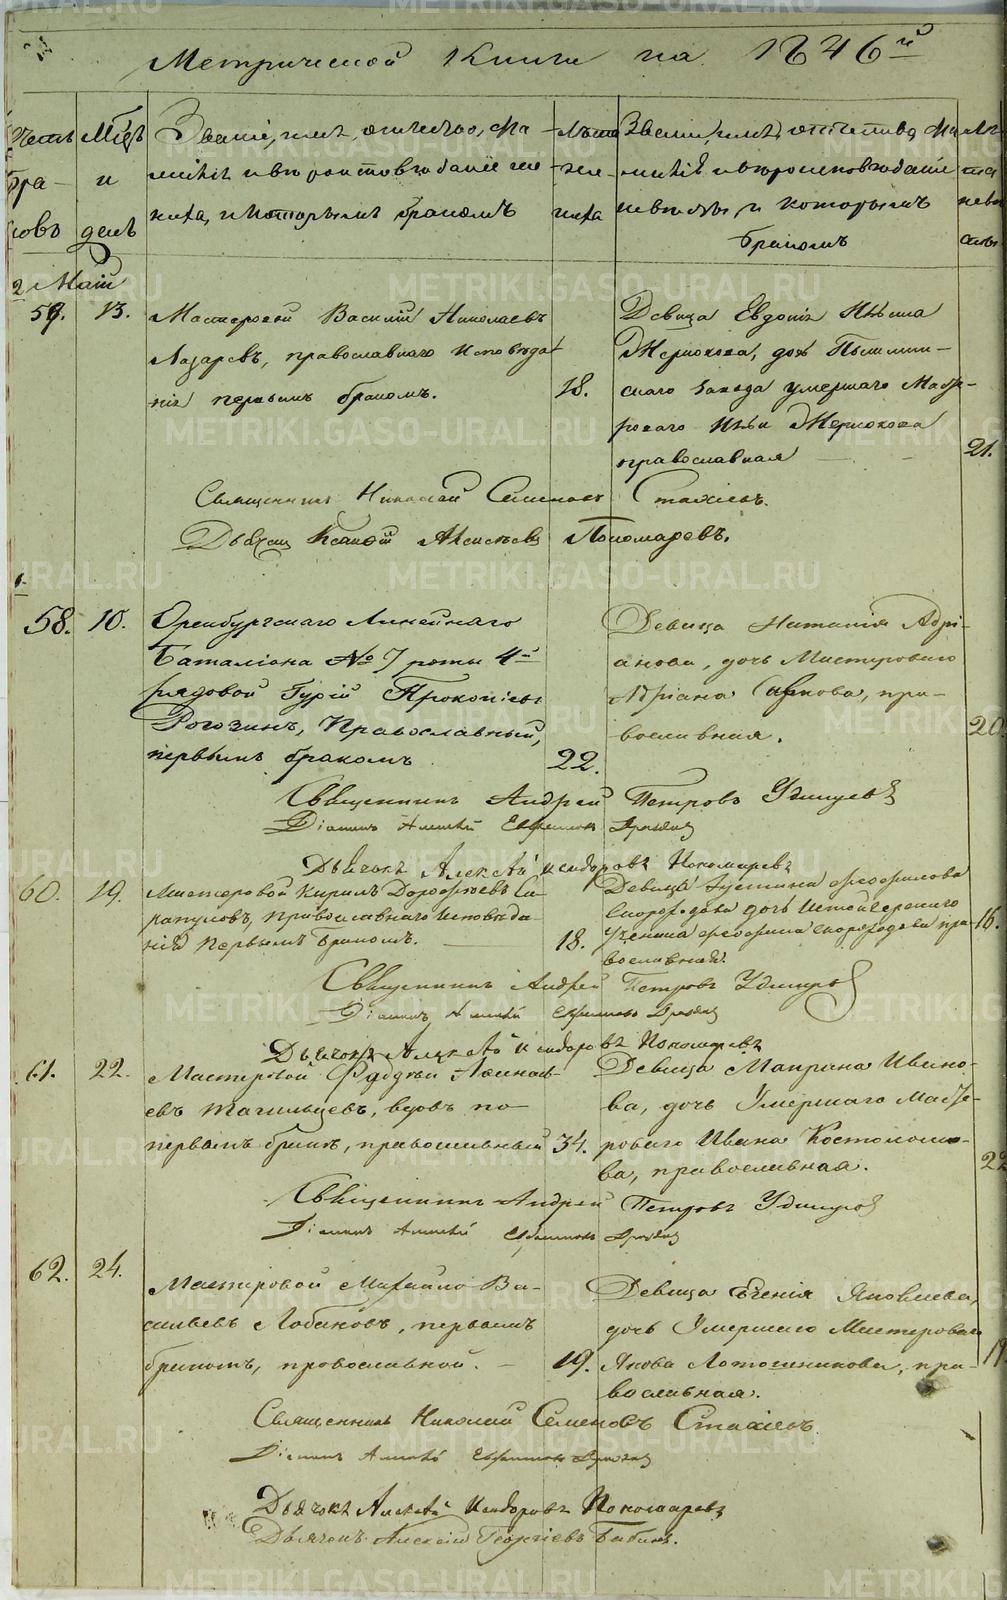 Метрической Книги на 1846й
Счетъ
бра-
ковъ
Мѣсѣ
и
день
Званіе, имя, отчество, фа-
милія и вѣроисповѣданіе же-
ниха, и которымъ бракомъ
Лѣта
же-
ниха
Званіе, имя, отчество, фа-
милія и вѣроисповѣданіе
невѣсты, и которымъ
бракомъ
Лѣ-
та
невѣ
сты
2 Май
59. 13. Мастеровой Василій Николаевъ
Лазаревъ, православнаго исповѣда-
нія первымъ бракомъ.
18.
Девица Евдокія
дочь
скаго завода умершаго Масте-
роваго
православная
21.
Священникъ Николай Семеновъ Стахіевъ.
Пономаревъ.
1.
58. 10. Оренбургскаго Линейнаго
Баталіона № 7 роты 4й
рядовой Гурій Прокопіевъ
Рогозинъ, Православный,
первымъ бракомъ
22.
Девица Наталія Адрі-
анова, дочь Мастероваго
Адріана пра-
вославная.
20.
Священникъ Андрей Петровъ Удинцевъ
Діаконъ Алексѣй Ефремовъ
Дьячокъ Алексѣй Исидоровъ Пономаревъ
60. 19. Мастеровой Кирилъ Дорофѣевъ Са-
рапуловъ, православнаго исповѣда-
нія первымъ бракомъ.
18.
Девица Устина Феофилова
Скороходова дочь
Феофила Скороходова пра-
вославная.
16.
Священникъ Андрей Петровъ Удинцевъ
Діаконъ Алексѣй Ефремовъ
Дьячокъ Алексѣй Исидоровъ Пономаревъ
61. 22. Мастеровой Фаддѣй
евъ Тагильцевъ, вдовъ по
первымъ бракѣ, православный
34.
Девица Маврина Ивано-
ва, дочь Умершаго Масте-
роваго Ивана Костоломо-
ва, православная.
22
Священникъ Андрей Петровъ Удинцевъ
Діаконъ Алексѣй Ефремовъ
62. 24. Мастеровой Михайло Ва-
сильевъ Лобановъ, первымъ
бракомъ, православной.
19.
Девица Евгенія Яковлева,
дочь Умершаго Мастероваго
Якова Лотошникова, пра-
вославная.
19
Священникъ Николай Семеновъ Стахіевъ
Діаконъ Алексѣй Ефремовъ
Дьячокъ Алексѣй Исидоровъ Пономаревъ
Дьячекъ Алексѣй Георгіевъ Бабинъ.
METRIKI.GASO-URAL.RU